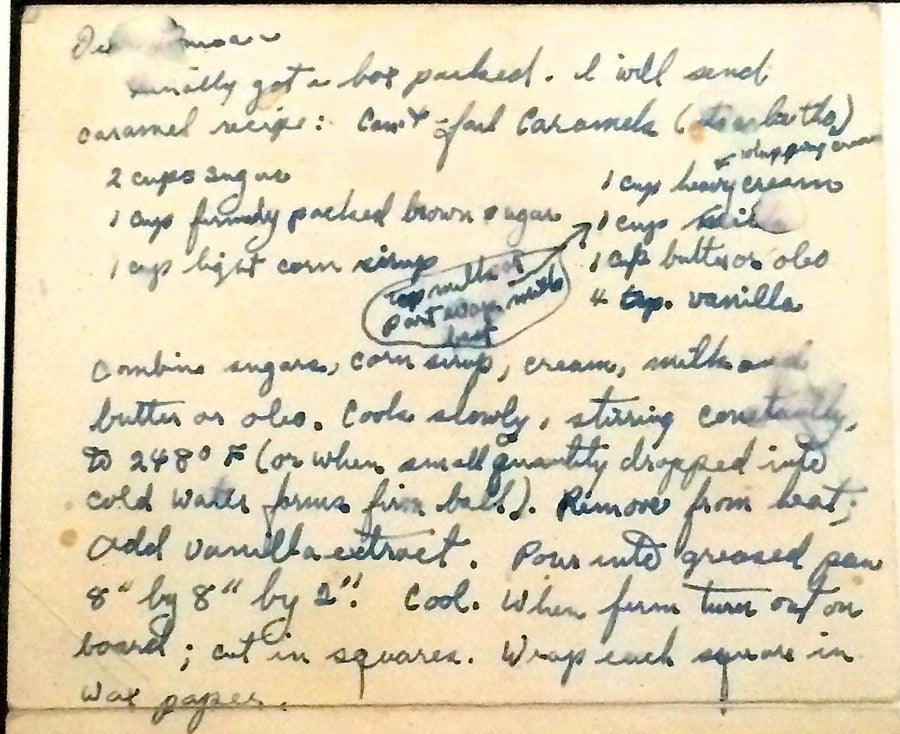 finally got a box packed. I will send
caramel recipe: Can't-fail Caramels
whipping cream
2 cups sugar
1 cup heavy cream
1 cup firmly packed brown sugar
1 cup milk
1 cup light corn sirup
1 cup butter or oleo
Top milk or
part evap. milk
best
4 tsp. vanilla
Combine sugars, corn sirup, cream, milk and
butter or oleo. Cook slowly, stirring constantly,
to 248° F (or when small quantity dropped into
cold water forms firm ball). Remove from heat;
add vanilla extract. Pour into greased pan
8" by 8" by 2". Cool. When firm turn out on
board; cut in squares. Wrap each square in
wax paper.